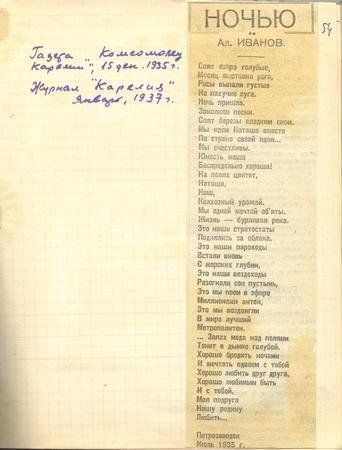 Газета „Комсомолец
Карелии", 15 дек. 1935 г.
Журнал "Карелия"
Январь, 1937 г.
54
НОЧЬЮ
Ал. ИВАНОВ.
Спят озера голубые,
Месяц выставил рога,
Росы выпали густые
На пахучие луга.
Ночь пришла.
Замолкли песни.
Спят березы сладким сном.
Мы идем Наташа вместе
По стране своей идем...
Мы счастливы.
Юность наша
Беспредельно хороша!
На полях цветет,
Наташа,
Наш,
Колхозный урожай.
Мы одной мечтой об'яты.
Жизнь — бурливая река.
Это наши стратостаты
Поднялись за облака.
Это наши пароходы
Встали вновь
С морских глубин,
Это наши вездеходы
Разогнали сон пустынь,
Это мы поем в эфире
Миллионами антен,
Это мы воздвигли
В мире лучший
Метрополитен.
... Запах меда над полями
Тонет в дымке голубой.
Хорошо бродить ночами
И мечтать вдвоем с тобой
Хорошо любить друг друга,
Хорошо любимым быть
И с тобой,
Моя подруга
Нашу родину
Любить...
Петрозаводск
Июль 1935 г.